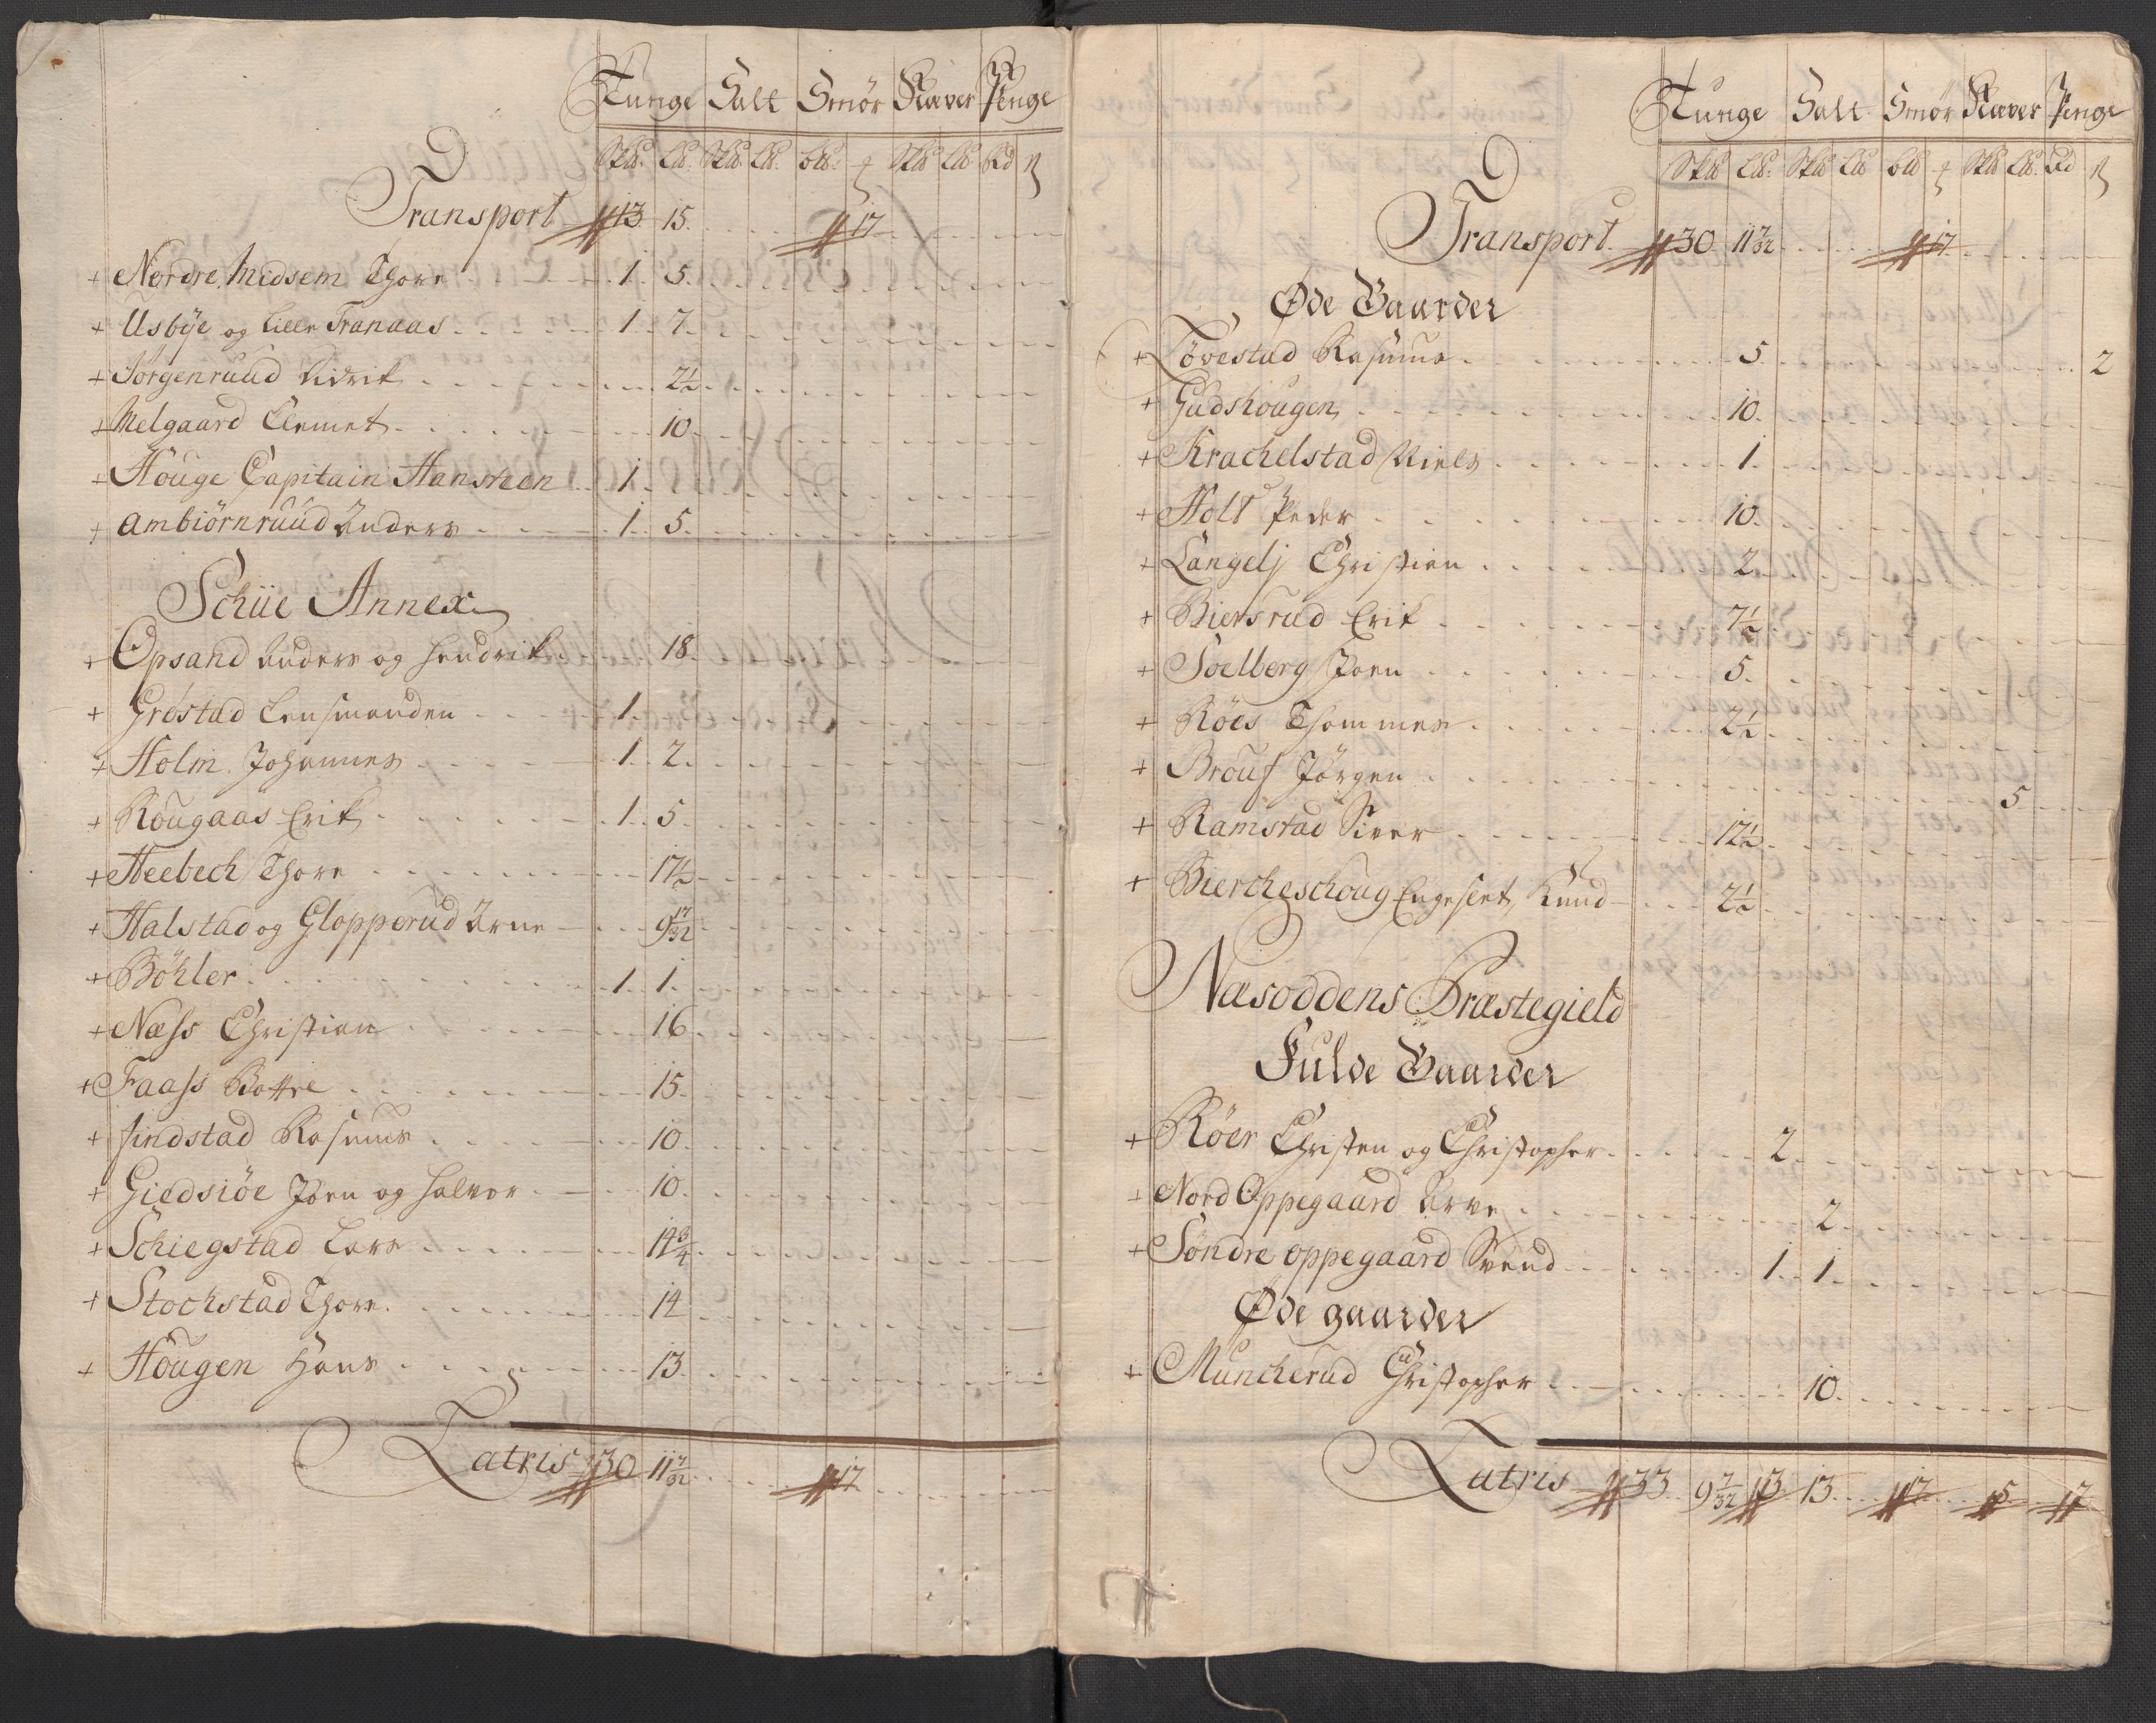 Tunge Salt Smør Klæver Penge
Sk℔ L℔ Sk℔ L℔ b℔ Sk℔ L℔ Rd
Transport 13 15 17
+ Nordre Midsem Thore 1 5
+ Usbÿe og Lille Tranaas 1 7
+ Jørgenruud Didrik 2½
+ Melgaard Clemet 10
+ Houge Capitain Hansteen 1
+ Ambiørnruud Anders 1 5
Schiie Annex
+ Opsand Anders og Hendrik 18
+ Grøstad Lensmanden 1
+ Holm Johannes 1 2
+ Rougaas Erik 1 5
+ Heebech Thore 17½
+ Halstad og Glopperud Arne 9 17/32
+ Bøhler 1 1
+ Næss Christian 16
+ Faass Bottre 15
+ Findstad Rasmus 10
+ Giedsiøe Joen og Halvor 10
+ Schiegstad Lars 14¾
+ Stochstad Thore 14
+ Hougen Hans 13
Latris 30 11 7/32 17
Tunge Salt Smør Klæver Penge
Sk℔ L℔ Sk℔ L℔ b℔ Sk℔ L℔ Rd
Transport 30 11 7/32 17
Øde Gaarder
+ Tøvestad Rasmus 5 2
+ Gudshougen 10
+ Krachelstad Niels 1
+ Holt Peder 10
+ Langelj Christian 2
+ Biersrud Erik 7½
+ Soelberg Joen 5
+ Røes Thommes 2½
+ Brouf Jørgen 5
+ Ramstad Siver 12½
+ Biercheschoug Engeslet, Knud 2½
Næsoddens Præstegield
Fulde Gaarder
+ Røer Christen og Christopher 2
+ Nord Oppegaard Arne 2
+ Søndre oppegaard Svend 1 1
Øde gaarder
+ Muncherud Christopher 10
Latris 33 9 7/32 3 13 17 5 2